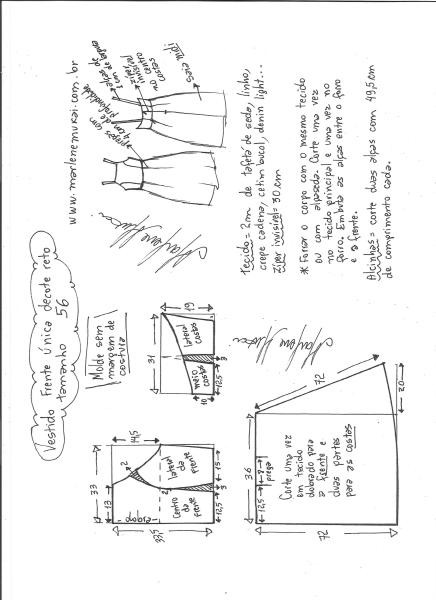 Vestido Frente Única decote reto
tamanho 56
www.marlenemukai.com.br
Molde sem
margem de
costura
pregas com
4 cm de
profundidade
zíper
invisível
no centro
costas
alças de
1 cm de
saia midi
33
13
14,5
2
2
33,5
dobra
Centro
da
frente
lateral
da
frente
12,5
3
15
31
19
10
meio
costas
lateral
costas
12,5
3
Tecido = 2m de tafetá de seda, linho,
crepe cadena, cetim bucol, denim light...
Zíper invisível = 30 cm
* Forrar o corpo com o mesmo tecido
ou com alpaseda. Corte uma vez
no tecido principal e uma vez no
forro. Embuta as alças entre o forro
e a frente.
Alcinhas = corte duas alças com 49,5 cm
de comprimento cada.
36
12,5
8
prega
72
72
20
Corte uma vez
em tecido
dobrado para
a frente e
duas partes
para as costas